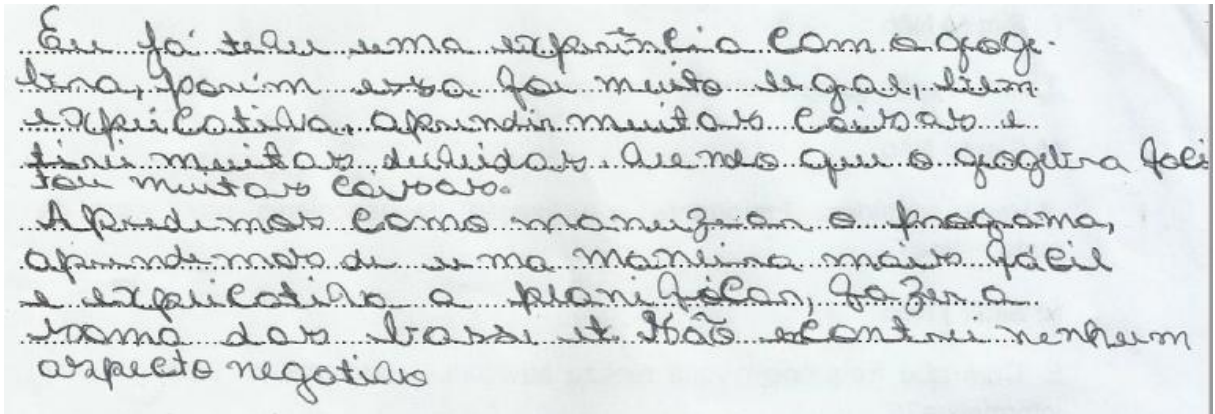 Eu já teliu uma experiência com o geoge-
bra, porém essa foi muito legal, bem
explicativa, aprendir muitas coisas e
tirei muitas duluidas. luendo que o geogebra faci
tou muitas coisas.
Apredemos como maneizar o programa,
aprendemos de uma maneira mais fácil
e explicativa a planificar, fazer a
soma das basse et Não econtrei nenhum
aspecto negativo